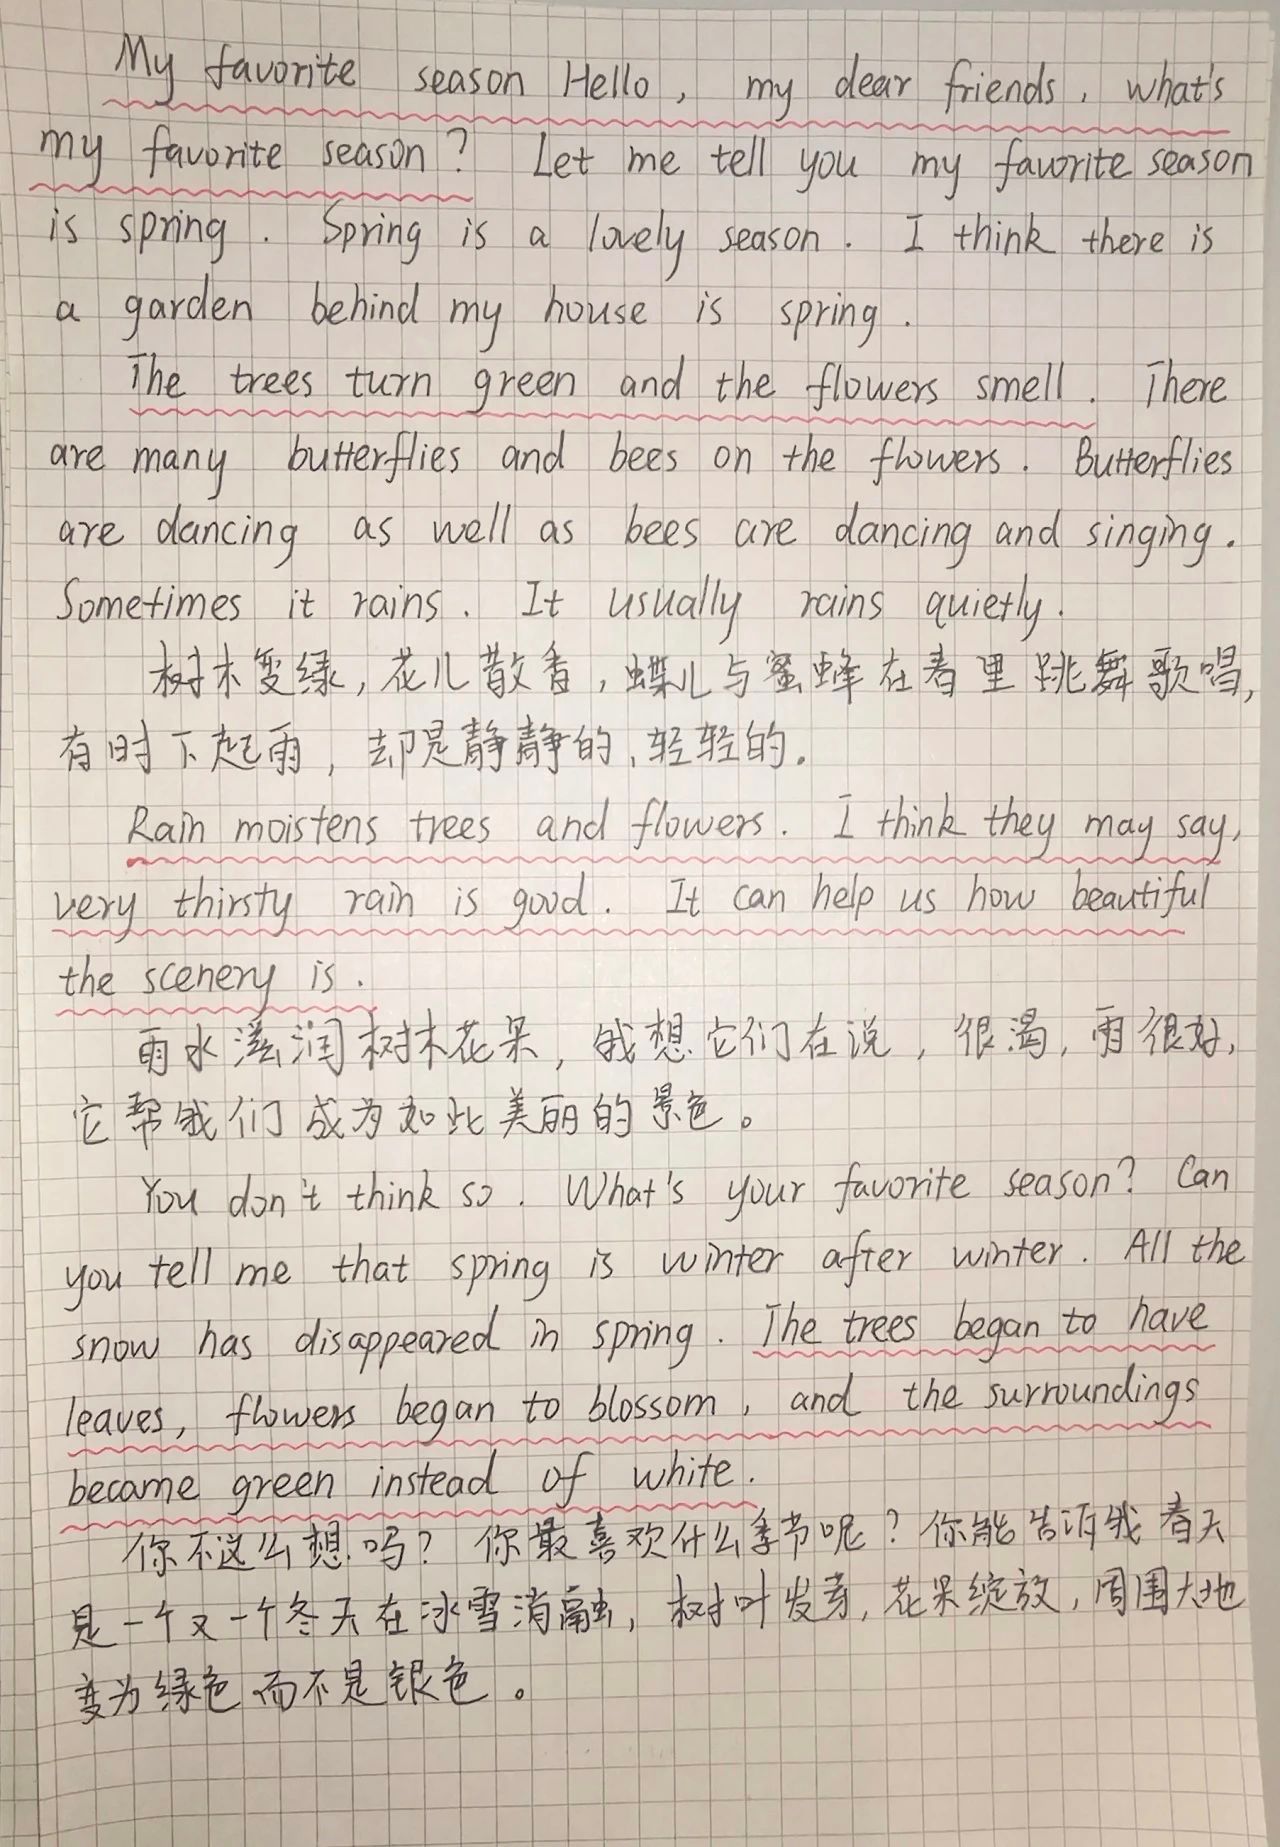 My favorite season Hello, my dear friends, what's
my favorite season? Let me tell you my favorite season
is spring. Spring is a lovely season. I think there is
a garden behind my house is spring.
The trees turn green and the flowers smell. There
are many butterflies and bees on the flowers. Butterflies
are dancing as well as bees are dancing and singing.
Sometimes it rains. It usually rains quietly.
树木变绿,花儿散香,蝶儿与蜜蜂在春里跳舞歌唱,
有时下起雨,却是静静的,轻轻的.
Rain moistens trees and flowers. I think they may say,
very thirsty rain is good. It can help us how beautiful
the scenery is.
雨水滋润树林花朵,我想它们在说,很渴,雨很好,
它帮我们成为如此美丽的景色。
You don't think so. What's your favorite season? Can
you tell me that spring is winter after winter. All the
snow has disappeared in spring. The trees began to have
leaves, flowers began to blossom, and the surroundings
became green instead of white.
你不这么想吗?你最喜欢什么季节呢?你能告诉我春天
是一个又一个冬天在冰雪消融,树叶发芽,花朵绽放,周围大地
变为绿色而不是银色。